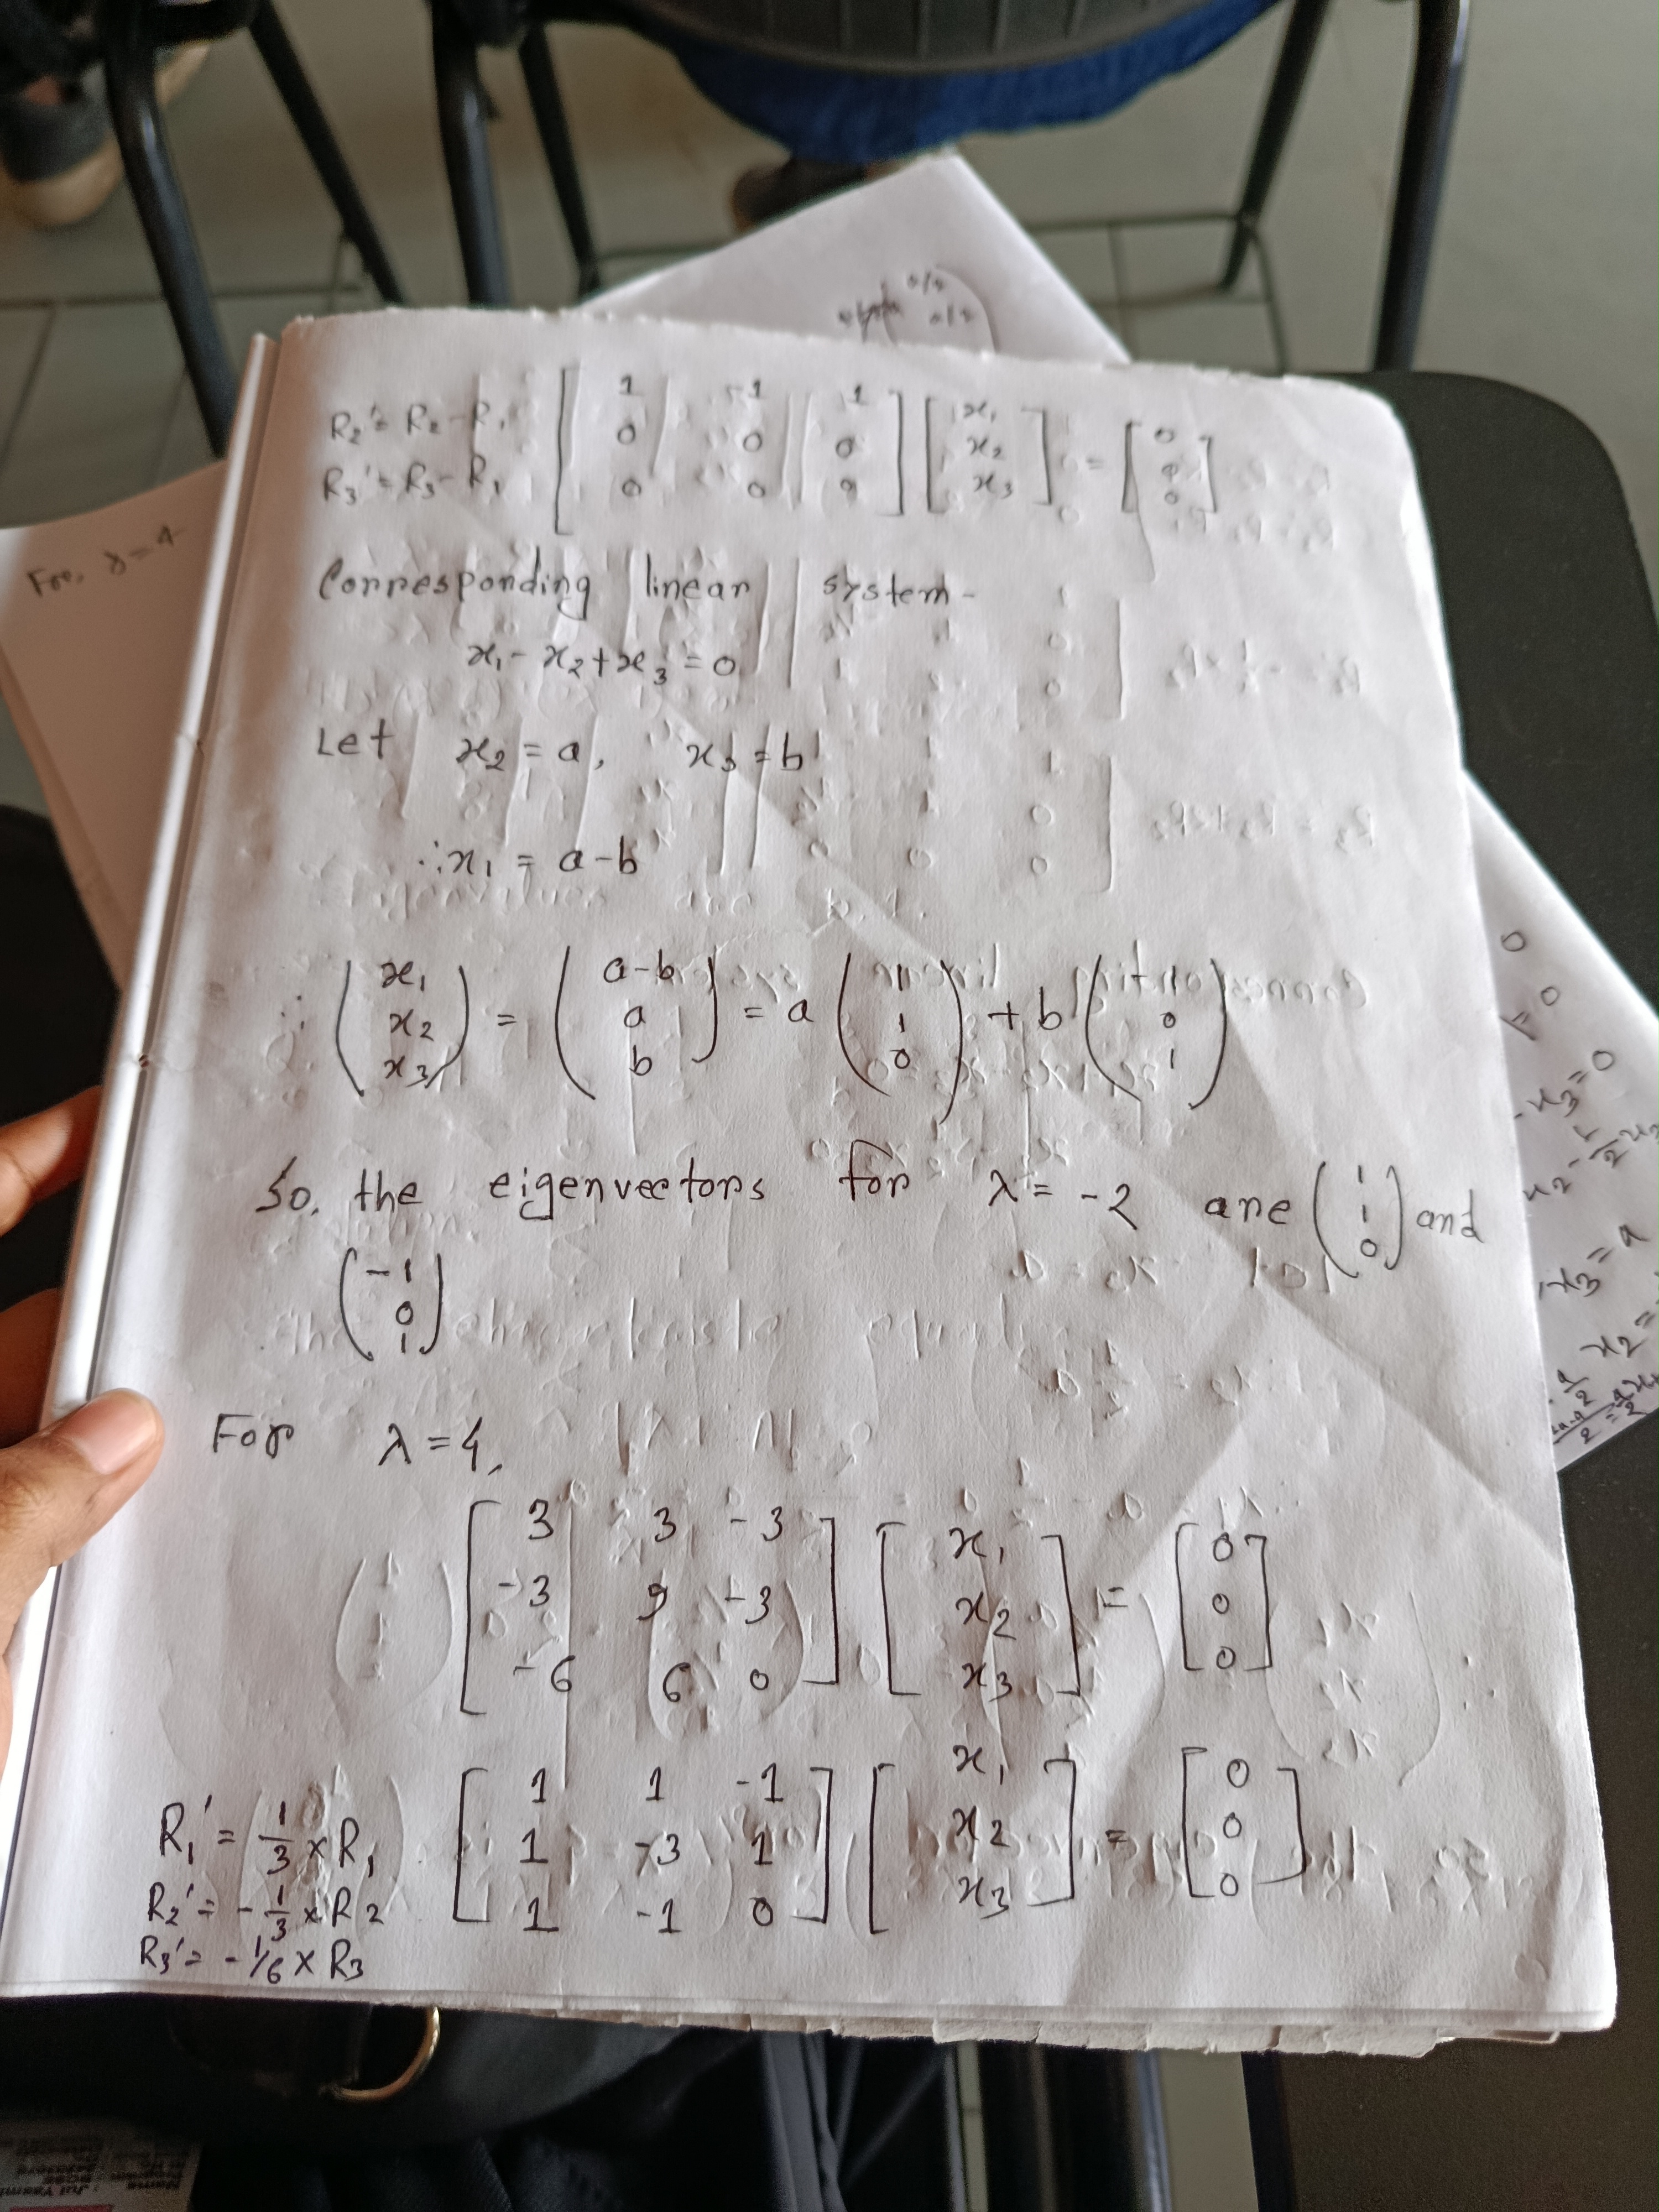 R₂' = R₂ - R₁
R₃' = R₃ - R₁
[1 -1 1
0 0 0
0 0 0] [x₁
x₂
x₃] = [0
0
0]
Corresponding linear system-
x₁ - x₂ + x₃ = 0
Let x₂ = a, x₃ = b
∴ x₁ = a-b
∴ (x₁
x₂
x₃) = (a-b
a
b) = a (1
1
0) + b (-1
0
1)
So, the eigenvectors for λ = -2 are (1
1
0) and
(-1
0
1)
For λ = 4,
[3 3 -3
-3 9 -3
-6 6 0] [x₁
x₂
x₃] = [0
0
0]
R₁' = 1/3 × R₁
R₂' = -1/3 × R₂
R₃' = -1/6 × R₃
[1 1 -1
1 -3 1
1 -1 0] [x₁
x₂
x₃] = [0
0
0]
0
= 0
-x₃ = 0
x₃ = a
x₂ =